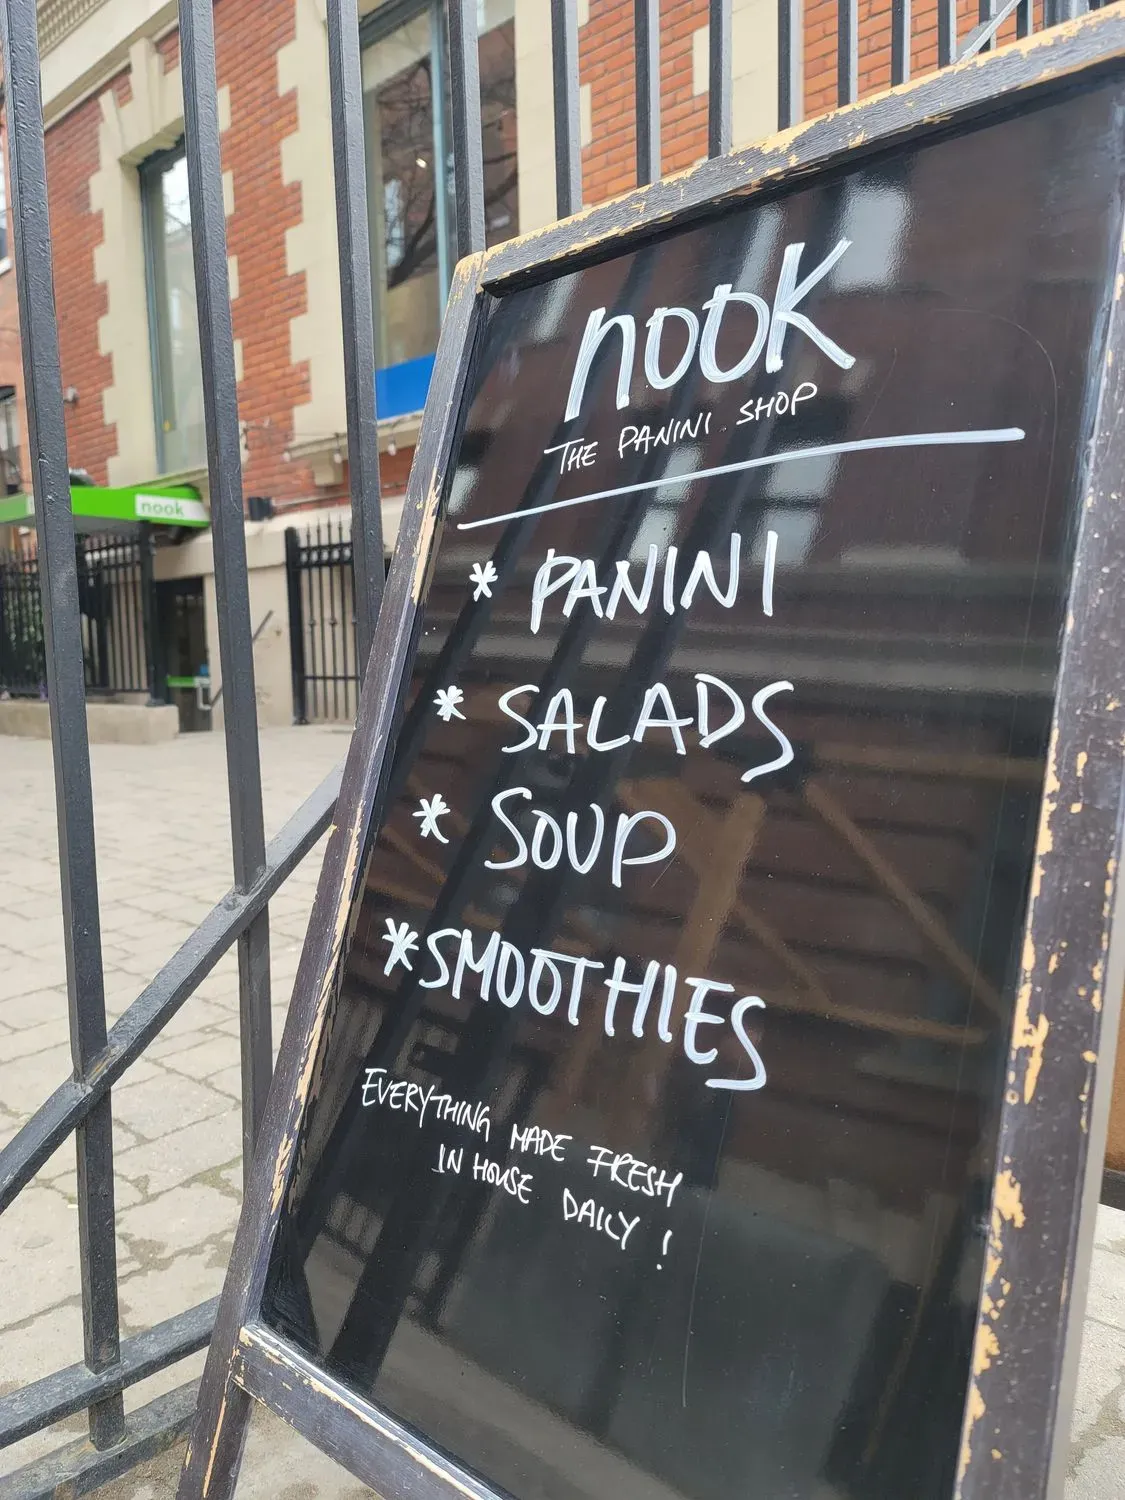 nook
THE PANINI SHOP
* PANINI
* SALADS
* SOUP
*SMOOTHIES
EVERYTHING MADE FRESH
IN HOUSE DAILY !
nook